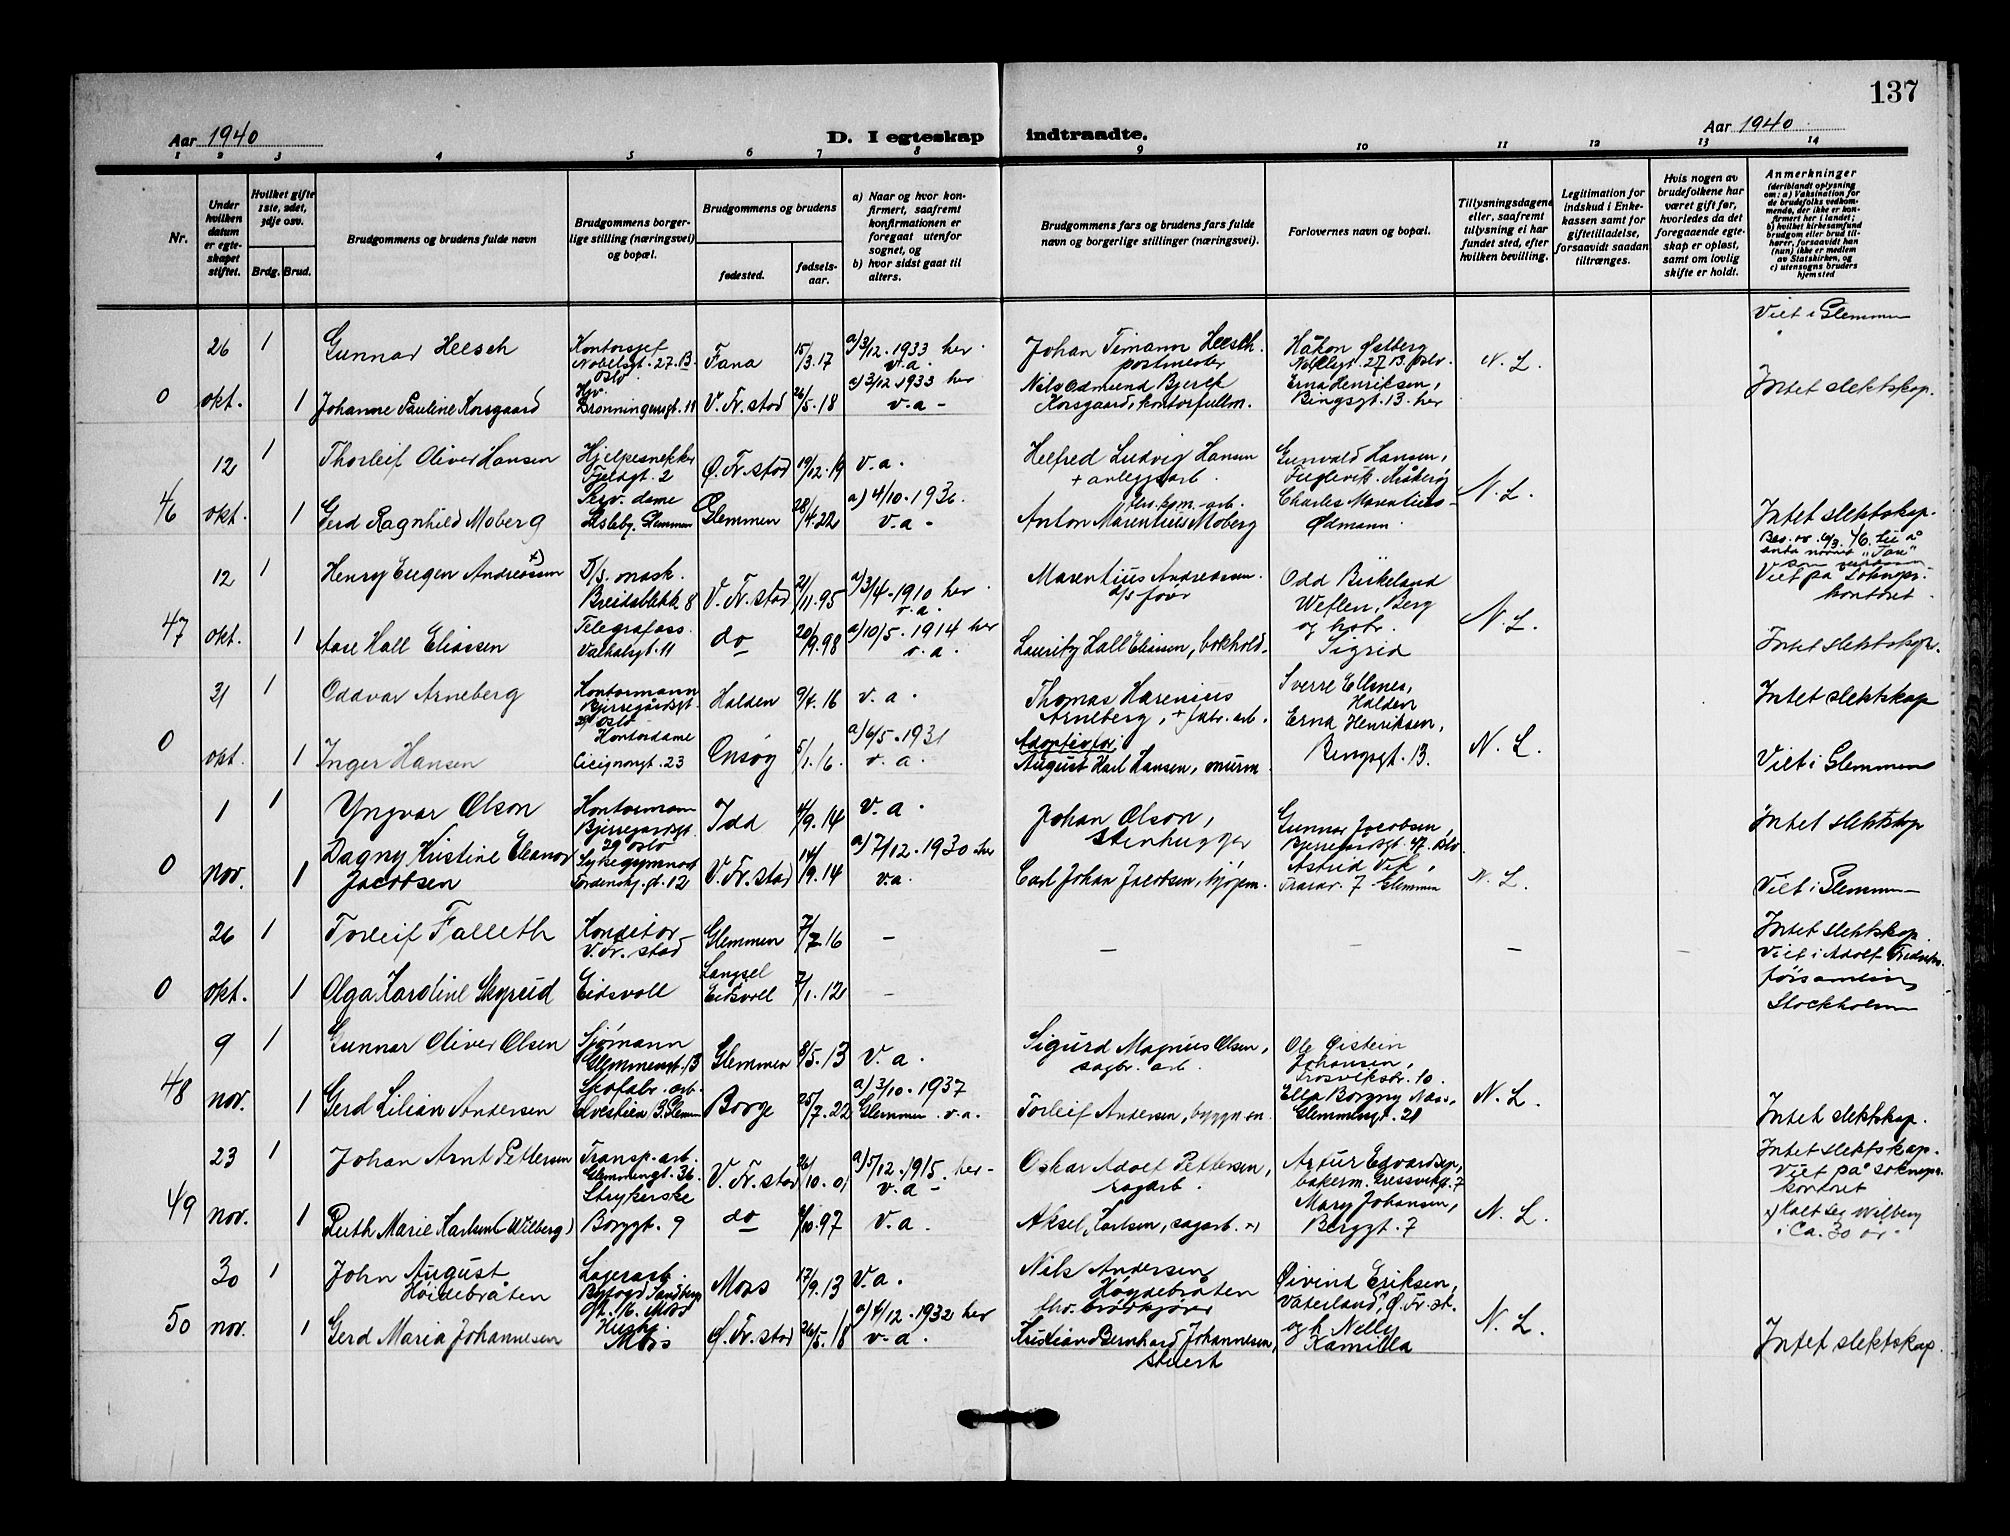 137
Aar 1940
D. I egteskap indtraadte.
Aar 1940
1 2 3 4 5 6 7 8 9 10 11 12 13 14
Nr.
Under hvilken datum er egteskapet stiftet.
Hvilket gifte 1ste, 2det, 3dje osv.
Brdg. Brud.
Brudgommens og brudens fulde navn
Brudgommens borgerlige stilling (næringsvei) og bopæl.
Brudgommens og brudens
fødested.
fødselsaar.
a) Naar og hvor konfirmert, saafremt konfirmationen er foregaat utenfor sognet, og
b) hvor sidst gaat til alters.
Brudgommens fars og brudens fars fulde navn og borgerlige stillinger (næringsvei).
Forlovernes navn og bopæl.
Tillysningsdagene eller, saafremt tillysning ei har fundet sted, efter hvilken bevilling.
Legitimation for indskud i Enkekassen samt for giftetilladelse, forsaavidt saadan tiltrænges.
Hvis nogen av brudefolkene har været gift før, hvorledes da det foregaaende egteskap er opløst, samt om lovlig skifte er holdt.
Anmerkninger
(deriblandt oplysning om: a) Vaksination for de brudefolks vedkommende, der ikke er konfirmert her i landet; b) hvilket kirkesamfund brudgom eller brud tilhører, forsaavidt han (hun) ikke er medlem av Statskirken, og c) utensogns bruders hjemsted
Viet i Glemmen
26 1 Gunnar Heesch Kontorsjef Nobelsgt. 27. B Oslo Fana 15/3.17 a) 3/12.1933 her v.a. Johan Timann Heesch postmester Håkon Østberg Nobelsgt. 27 B. Oslo N. L.
0 okt. 1 Johanne Pauline Korsgaard Hgv. Dronningensgt. 11 V. Fr.stad 26/5.18 a) 3/12.1933 her v.a - Nils Edmund Bjerck Korsgaard, kontorfullm. Erna Henriksen, Bingsgt. 13. her Intet slektskap.
12 1 Thorleif Oliver Hansen Hjelpesnekker Fjeldgt. 2 Ø. Fr.stad 19/12.19 v.a. Helfred Ludvig Hansen + anleggsarb. Gunvald Hansen, Fuglevik
46 okt. 1 Gerd Ragnhild Moberg Serv. dame Lisleby, Glemmen Glemmen 28/4.22 a) 4/10.1936. v.a - Anton Marentius Moberg Charles Marentius Ødmann. N. L. Intet slektskap.
Bev. av 6/3. 46. til å anta navnet "Tose"
12 1 Henry Eugen Andreassen x) D/s. mask. Breidablikk 8 V. Fr.stad 21/11.95 a) 3/4.1910 her v.a. Marentius Andreassen. Odd Birkeland Weflen, Berg Viet på Sokneprkontoret.
47 okt. 1 Aase Hall Eliassen Telegrafass. Valhalsgt. 11 do 20/9.98 a) 10/5.1914 her v.a. Lauritz Hall Eliassen, bokhold. og hstr. Sigrid N. L. Intet slektskap.
31 1 Oddvar Arneberg Kontormann Bjerregårdsgt. 29 Oslo Halden 9/4.16 v.a. Thomas Harenius Arneberg, + fabr. arb. Sverre Ellsnes, Halden Intet slektskap
0 okt. 1 Inger Hansen Kontordame Cicignonsgt. 23 Onsøy 5/1.16. a) 6/5.1931 v.a. Adoptivfar: August Karl Hansen, murm. Erna Henriksen, Bingsgt. 13. N. L. Viet i Glemmen
1 1 Yngvar Olson Kontormann Bjerregårdsgt. 29 Oslo Idd 4/9.14 v.a. Johan Olson, stenhugger Gunnar Jacobsen, Bjerregårdsgt. 47. Oslo Intet slektskap
0 nov. 1 Dagny Kristine Eleanor Jacobsen Sykegymnast Tordenskj.gt. 12 V. Fr.stad 14/9.14 a) 7/12.1930 her v.a. Carl Johan Jacobsen, kjøpm. Astrid Vik, Traravn. 7 Glemmen N. L. Viet i Glemmen
26 1 Torleif Falleth Konditor V. Fr. stad Glemmen 7/7.16 - - - - Intet slektskap
0 okt. 1 Olga Karoline Skyrud Eidsvoll Langset Eidsvoll 7/1.12 - Viet i Adolf Fredriks församling Stockholm
9 1 Gunnar Oliver Olsen Sjømann Glemmengt. 13 Glemmen 8/5.13 v.a. Sigurd Magnus Olsen, sagbr. arb. Ole Øistein Johansen, Trosvikstr. 10.
48 nov. 1 Gerd Lilian Andersen Skofabr. arb. Elvestien 3. Glemm Borge 25/7.22 a) 3/10.1937 Glemmen. v.a. Torleif Andersen, byggn.sn. Ella Borgny Næss, Glemmengt. 21 N. L. Intet slektskap.
23 1 Johan Arnt Pettersen Transp. arb. Glemmengt. 36. V. Fr. stad 26/10.01 a) 5/12.1915. her - v.a - Oskar Adolf Pettersen, sagarb. Artur Edvardsen, bakerm. Gressvikgt. 7 Intet slektskap. Viet på soknepr. kontoret
49 nov. 1 Ruth Marie Karlsen (Wilberg) Strykerske Borggt. 9 do 4/10.97 v.a. Aksel Karlsen, sagarb. x) Mary Johansen, Berggt. 7 N. L. x) Kalt seg Wilberg i ca. 30 år.
30 1 John August Høidebråten Lagerarb. Byfogd Sandbergs gt. 16. Moss Moss 17/9.13 v.a. Nils Andersen Høydebråten fhv. brødkjører Øivind Eriksen, Vaterland, Ø. Fr. st.
50 nov. 1 Gerd Maria Johannesen Hushj. Moss Ø. Fr. stad 26/5.18 a) 4/12.1932 her v.a. Kristian Bernhard Johannesen, stuert og h. Nelly Kamilla N. L. Intet slektskap.